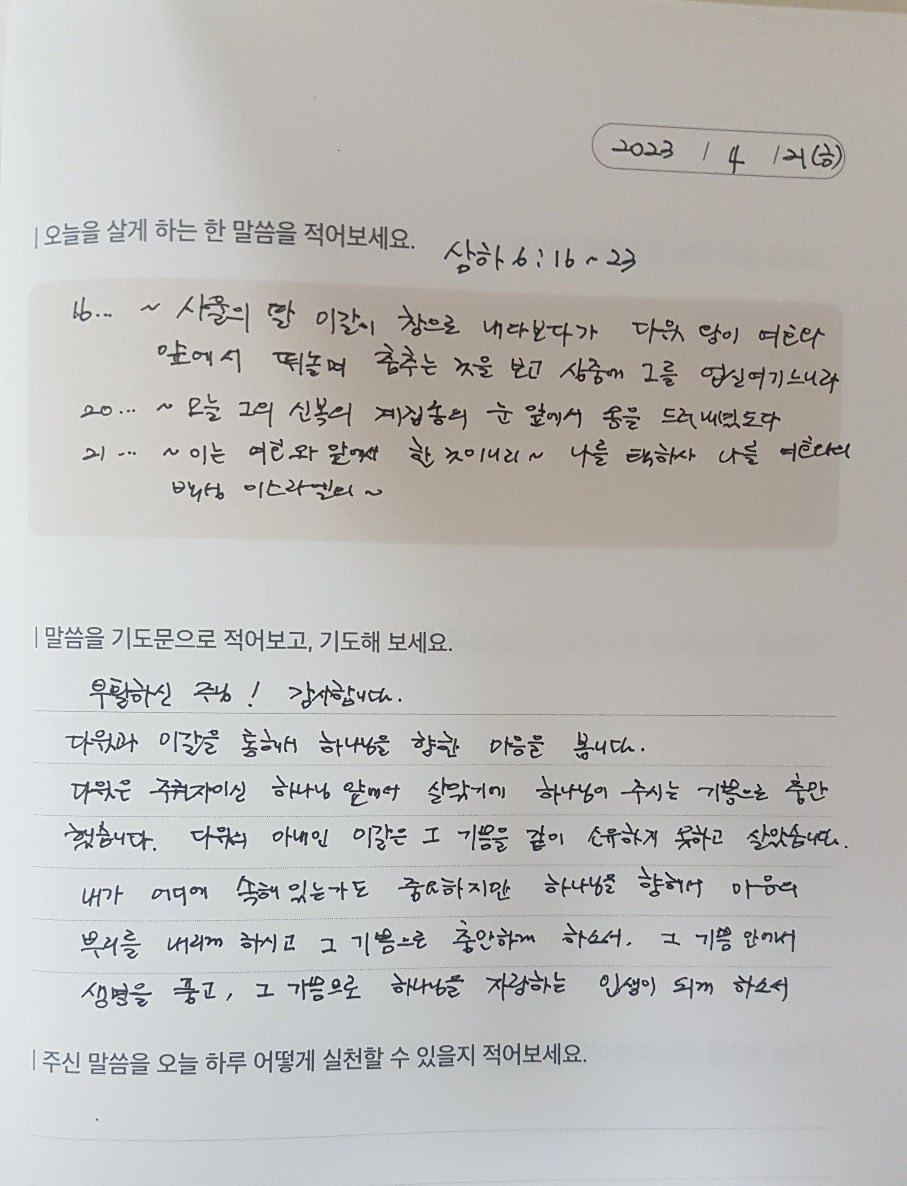 2023 / 4 / 21(금)
오늘을 살게 하는 한 말씀을 적어보세요.
삼하 6:16~23
16... ~ 사울의 딸 미갈이 창으로 내다보다가 다윗 왕이 여호와
앞에서 뛰놀며 춤추는 것을 보고 심중에 그를 업신여기느니라
20... ~ 오늘 그의 신복의 계집종의 눈 앞에서 몸을 드러내셨도다
21 ... ~ 이는 여호와 앞에서 한 것이니라~ 나를 택하사 나를 여호와의
백성 이스라엘의 ~
말씀을 기도문으로 적어보고, 기도해 보세요.
부활하신 주님! 감사합니다.
다윗과 미갈을 통해서 하나님을 향한 마음을 봅니다.
다윗은 주권자이신 하나님 앞에서 살았기에 하나님이 주시는 기쁨으로 충만
했습니다. 다윗의 아내인 미갈은 그 기쁨을 같이 소유하지 못하고 살았습니다.
내가 어디에 속해 있는가도 중요하지만 하나님을 향해서 마음의
뿌리를 내리게 하시고 그 기쁨으로 충만하게 하소서. 그 기쁨 안에서
생명을 품고, 그 기쁨으로 하나님을 자랑하는 인생이 되게 하소서
주신 말씀을 오늘 하루 어떻게 실천할 수 있을지 적어보세요.